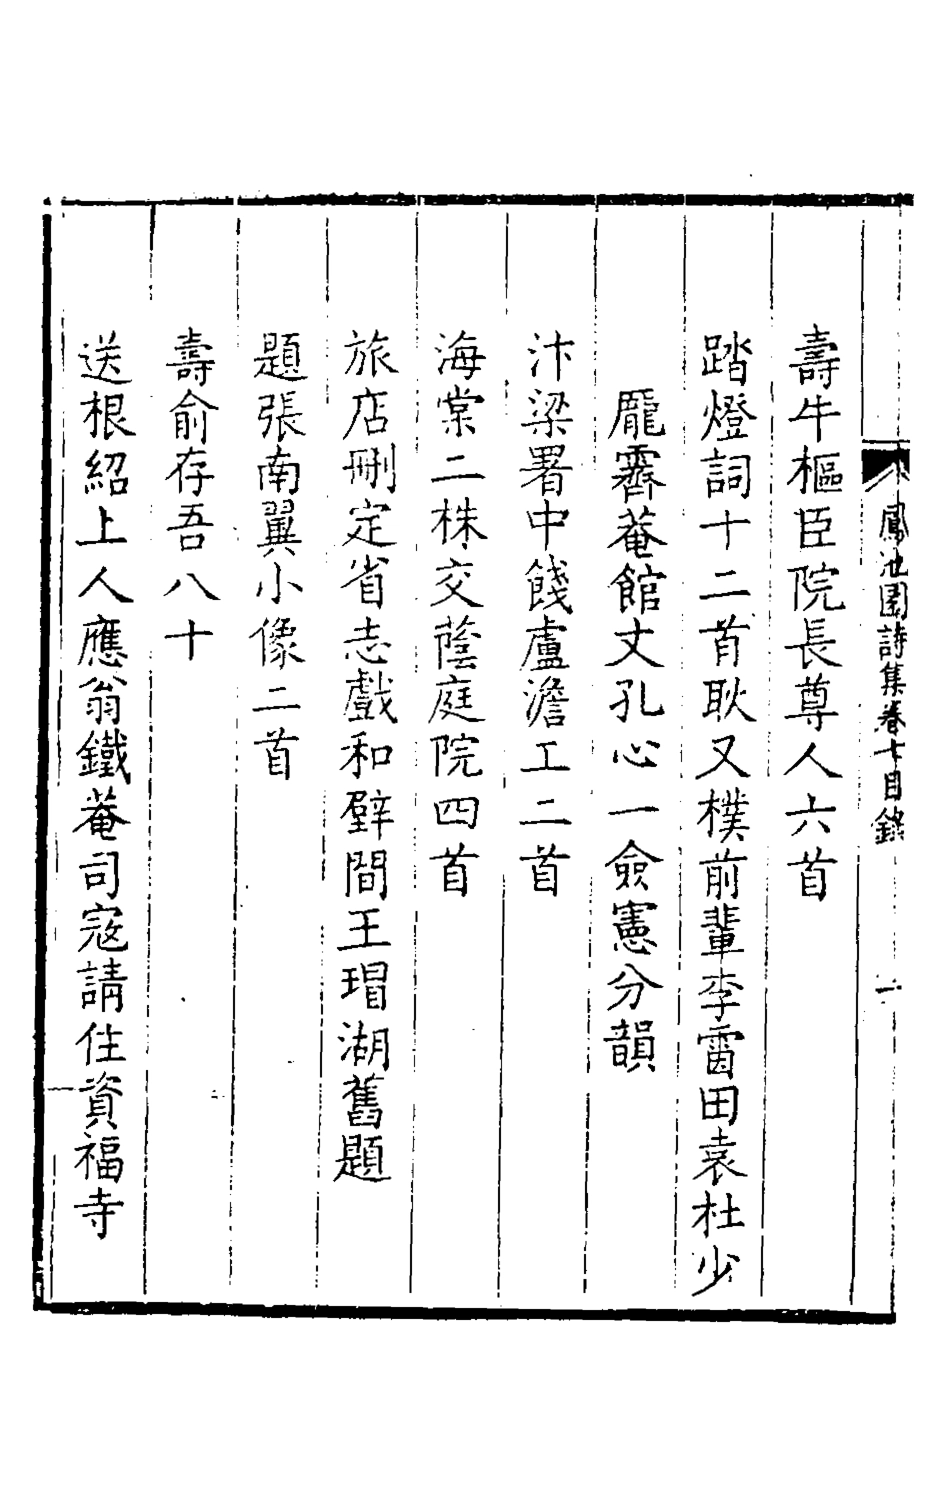 鳳池園詩集卷七目錄 一
壽牛樞臣院長尊人六首
踏燈詞十二首耿又樸前輩李雷田袁杜少
龎霽菴館丈孔心一僉憲分韻
汴梁署中餞盧澹工二首
海棠二株交蔭庭院四首
旅店刪定省志戲和壁間王瑁湖舊題
題張南翼小像二首
壽俞存吾八十
送根紹上人應翁鐵菴司寇請住資福寺